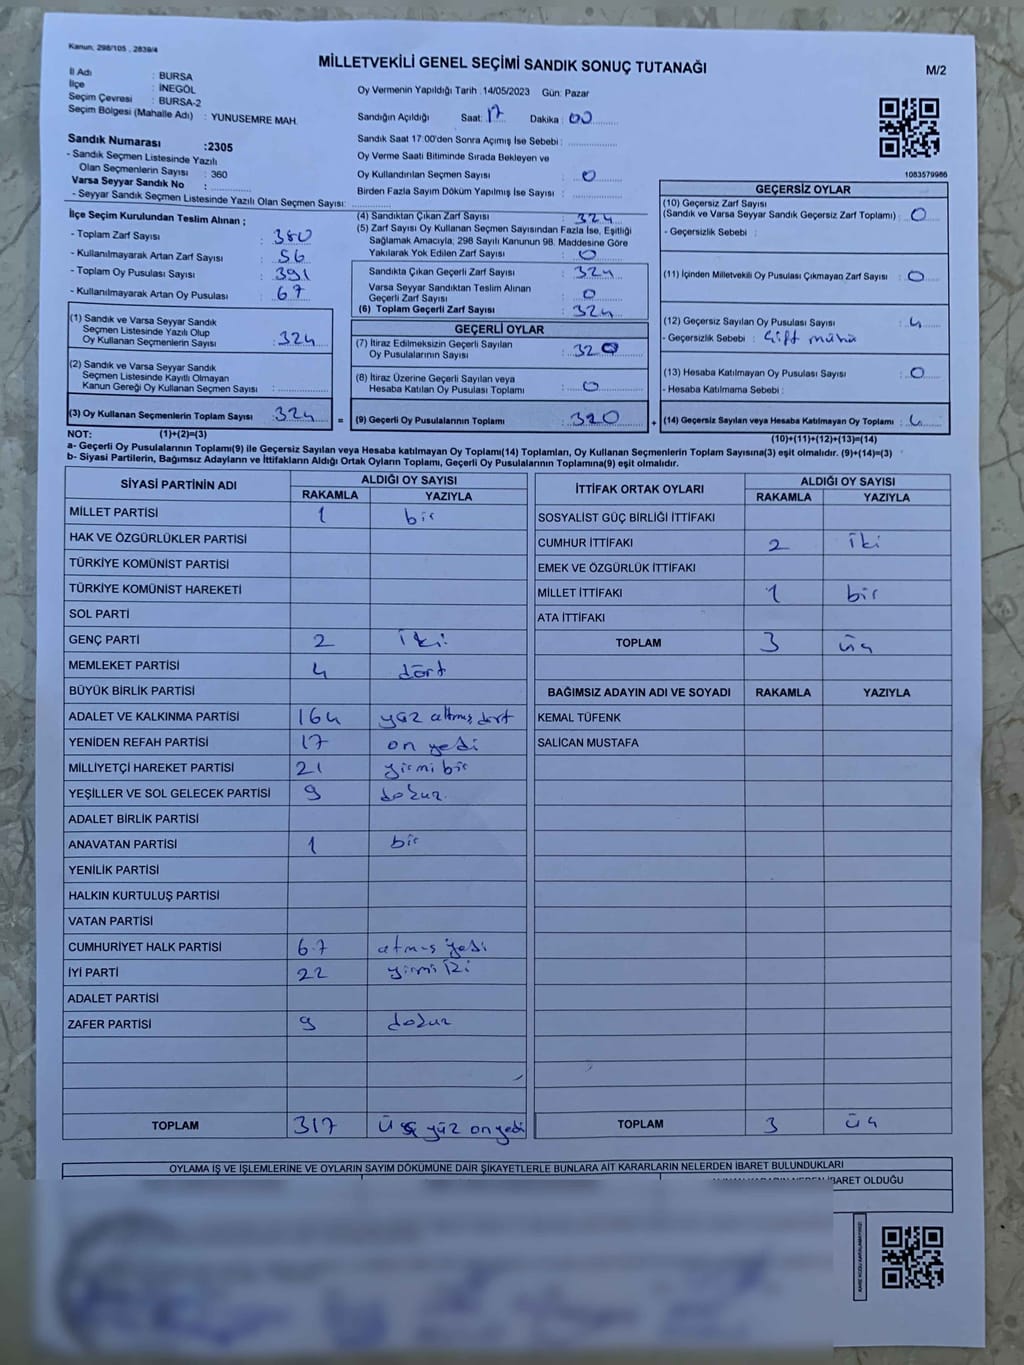 Kanun, 298/105 , 2839/4
MİLLETVEKİLİ GENEL SEÇİMİ SANDIK SONUÇ TUTANAĞI
M/2
İl Adı : BURSA
İlçe : İNEGÖL
Seçim Çevresi : BURSA-2
Seçim Bölgesi (Mahalle Adı) : YUNUSEMRE MAH.
Oy Vermenin Yapıldığı Tarih :14/05/2023 Gün: Pazar
Sandığın Açıldığı Saat: 17 Dakika : 00
Sandık Saat 17:00'den Sonra Açımış İse Sebebi :
Oy Verme Saati Bitiminde Sırada Bekleyen ve
Oy Kullandırılan Seçmen Sayısı : 0
Birden Fazla Sayım Döküm Yapılmış İse Sayısı :
1083579986
Sandık Numarası :2305
- Sandık Seçmen Listesinde Yazılı
Olan Seçmenlerin Sayısı : 360
Varsa Seyyar Sandık No :
- Seyyar Sandık Seçmen Listesinde Yazılı Olan Seçmen Sayısı:
İlçe Seçim Kurulundan Teslim Alınan ;
- Toplam Zarf Sayısı : 380
- Kullanılmayarak Artan Zarf Sayısı : 56
- Toplam Oy Pusulası Sayısı : 391
- Kullanılmayarak Artan Oy Pusulası : 67
(1) Sandık ve Varsa Seyyar Sandık
Seçmen Listesinde Yazılı Olup
Oy Kullanan Seçmenlerin Sayısı : 324
(2) Sandık ve Varsa Seyyar Sandık
Seçmen Listesinde Kayıtlı Olmayan
Kanun Gereği Oy Kullanan Seçmen Sayısı :
(3) Oy Kullanan Seçmenlerin Toplam Sayısı : 324 =
(4) Sandıktan Çıkan Zarf Sayısı : 324
(5) Zarf Sayısı Oy Kullanan Seçmen Sayısından Fazla İse, Eşitliği
Sağlamak Amacıyla; 298 Sayılı Kanunun 98. Maddesine Göre
Yakılarak Yok Edilen Zarf Sayısı : 0
Sandıkta Çıkan Geçerli Zarf Sayısı : 324
Varsa Seyyar Sandıktan Teslim Alınan
Geçerli Zarf Sayısı : 0
(6) Toplam Geçerli Zarf Sayısı : 324
GEÇERLİ OYLAR
(7) İtiraz Edilmeksizin Geçerli Sayılan
Oy Pusulalarının Sayısı : 320
(8) İtiraz Üzerine Geçerli Sayılan veya
Hesaba Katılan Oy Pusulası Toplamı : 0
(9) Geçerli Oy Pusulalarının Toplamı : 320 +
GEÇERSİZ OYLAR
(10) Geçersiz Zarf Sayısı
(Sandık ve Varsa Seyyar Sandık Geçersiz Zarf Toplamı) : 0
- Geçersizlik Sebebi :
(11) İçinden Milletvekili Oy Pusulası Çıkmayan Zarf Sayısı : 0
(12) Geçersiz Sayılan Oy Pusulası Sayısı : 4
- Geçersizlik Sebebi : Çift mühür
(13) Hesaba Katılmayan Oy Pusulası Sayısı : 0
- Hesaba Katılmama Sebebi :
(14) Geçersiz Sayılan veya Hesaba Katılmayan Oy Toplamı : 4
NOT: (1)+(2)=(3)
(10)+(11)+(12)+(13)=(14)
a- Geçerli Oy Pusulalarının Toplamı(9) ile Geçersiz Sayılan veya Hesaba katılmayan Oy Toplamı(14) Toplamları, Oy Kullanan Seçmenlerin Toplam Sayısına(3) eşit olmalıdır. (9)+(14)=(3)
b- Siyasi Partilerin, Bağımsız Adayların ve İttifakların Aldığı Ortak Oyların Toplamı, Geçerli Oy Pusulalarının Toplamına(9) eşit olmalıdır.
SİYASİ PARTİNİN ADI ALDIĞI OY SAYISI
RAKAMLA YAZIYLA
MİLLET PARTİSİ 1 bir
HAK VE ÖZGÜRLÜKLER PARTİSİ
TÜRKİYE KOMÜNİST PARTİSİ
TÜRKİYE KOMÜNİST HAREKETİ
SOL PARTİ
GENÇ PARTİ 2 iki
MEMLEKET PARTİSİ 4 dört
BÜYÜK BİRLİK PARTİSİ
ADALET VE KALKINMA PARTİSİ 164 yüz altmış dört
YENİDEN REFAH PARTİSİ 17 on yedi
MİLLİYETÇİ HAREKET PARTİSİ 21 yirmi bir
YEŞİLLER VE SOL GELECEK PARTİSİ 9 dokuz
ADALET BİRLİK PARTİSİ
ANAVATAN PARTİSİ 1 bir
YENİLİK PARTİSİ
HALKIN KURTULUŞ PARTİSİ
VATAN PARTİSİ
CUMHURİYET HALK PARTİSİ 67 atmış yedi
İYİ PARTİ 22 yirmi iki
ADALET PARTİSİ
ZAFER PARTİSİ 9 dokuz
TOPLAM 317 üç yüz on yedi
İTTİFAK ORTAK OYLARI ALDIĞI OY SAYISI
RAKAMLA YAZIYLA
SOSYALİST GÜÇ BİRLİĞİ İTTİFAKI
CUMHUR İTTİFAKI 2 iki
EMEK VE ÖZGÜRLÜK İTTİFAKI
MİLLET İTTİFAKI 1 bir
ATA İTTİFAKI
TOPLAM 3 üç
BAĞIMSIZ ADAYIN ADI VE SOYADI RAKAMLA YAZIYLA
KEMAL TÜFENK
SALİCAN MUSTAFA
TOPLAM 3 üç
OYLAMA İŞ VE İŞLEMLERİNE VE OYLARIN SAYIM DÖKÜMÜNE DAİR ŞİKAYETLERLE BUNLARA AİT KARARLARIN NELERDEN İBARET BULUNDUKLARI
İBARET OLDUĞU